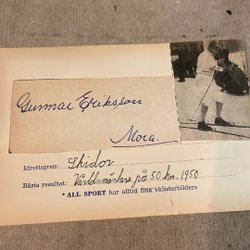 Gunnar Eriksson
Mora.
Idrottsgren: Skidor
Bästa resultat: Världsmästare på 50 km. 1950
* ALL SPORT har alltid fina skidåkarbilder